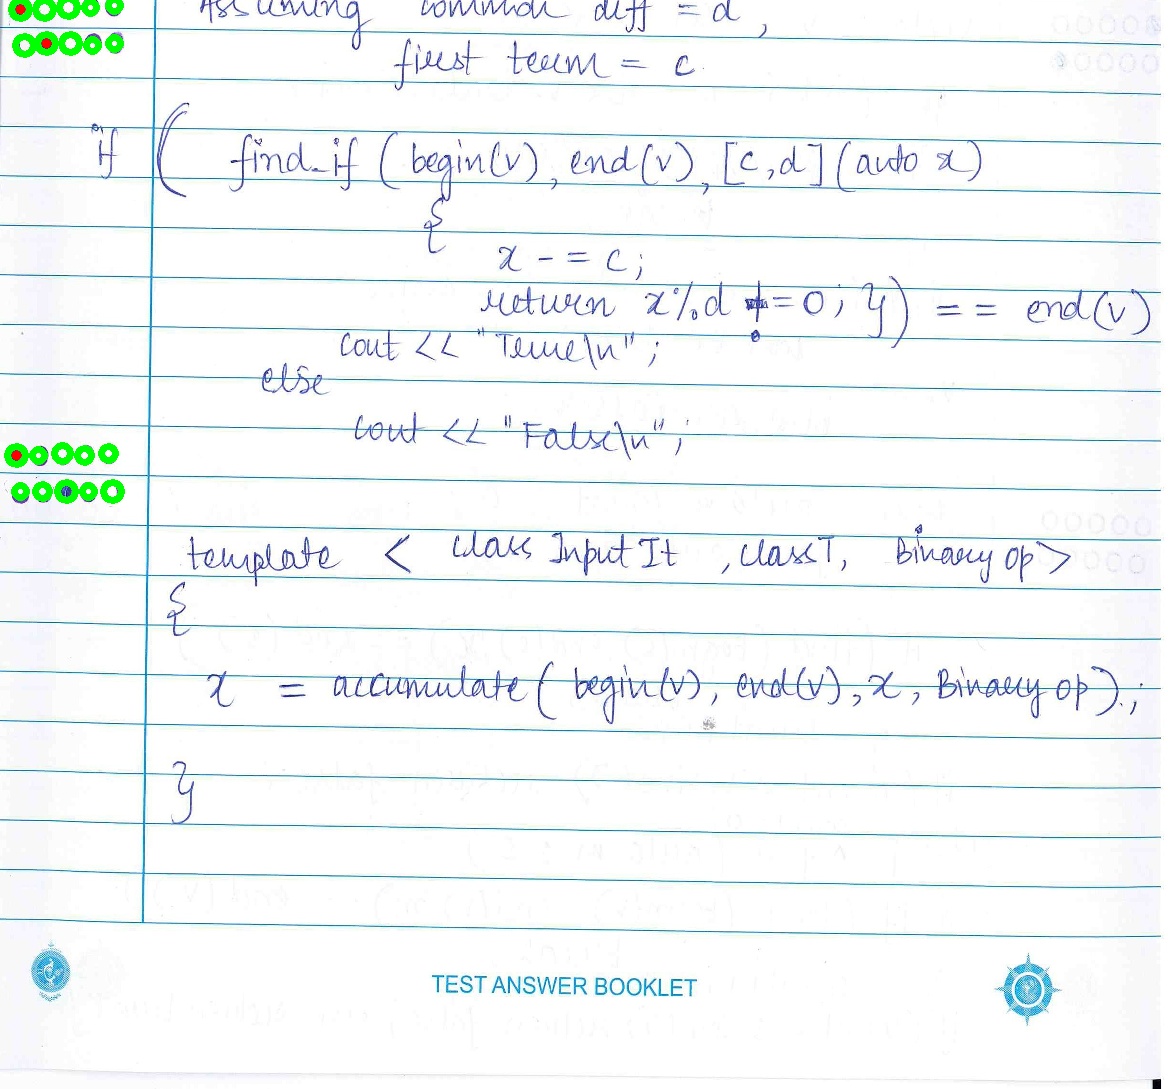 Assuming common diff = d,
first term = c
if ( find_if (begin(v), end(v), [c,d](auto x)
{
x -= c;
return x%d != 0; }) == end(v)
cout << "True\n";
else
cout << "False\n";
template < class Input It , class T, Binary op>
{
x = accumulate( begin(v), end(v), x, Binary op);
}
TEST ANSWER BOOKLET